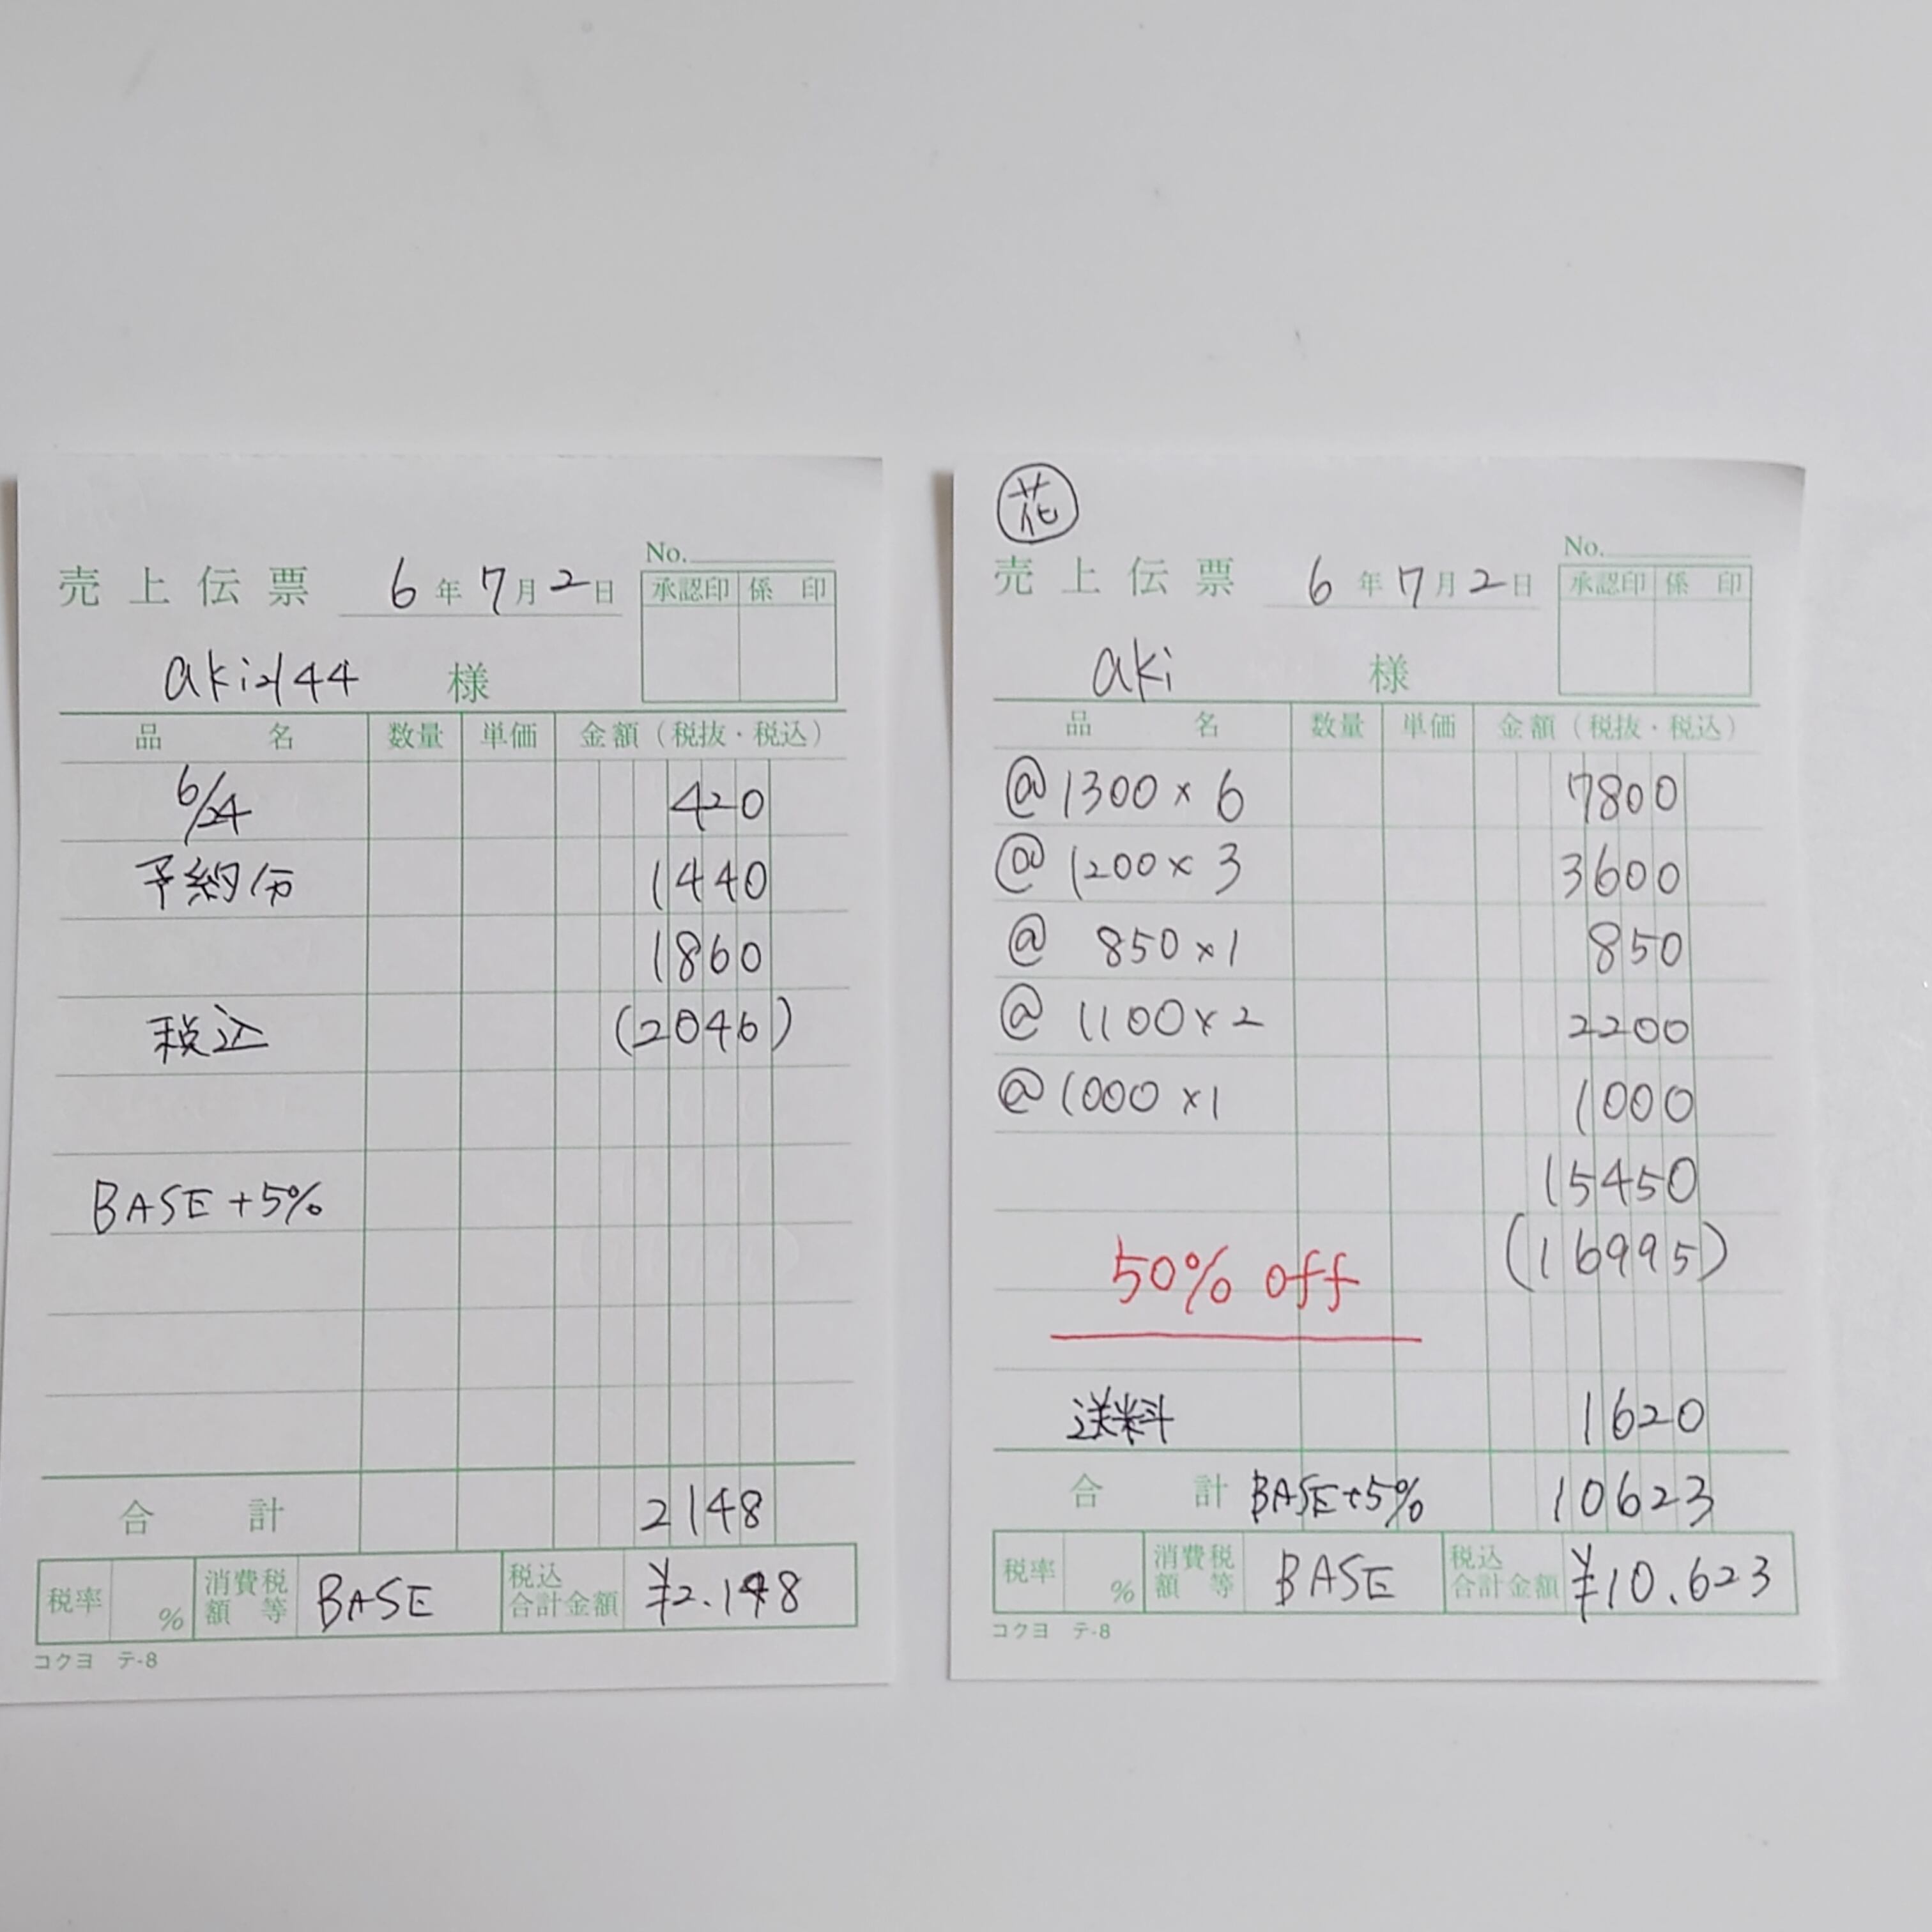 No.
売上伝票 6年7月2日
承認印 係印
aki2144 様
品名 数量 単価 金額（税抜・税込）
6/24 420
予約分 1440
1860
税込 (2046)
BASE+5%
合計 2148
税率 % 消費税額等 BASE 税込合計金額 ¥2.148
コクヨ テ-8
花
No.
売上伝票 6年7月2日
承認印 係印
aki 様
品名 数量 単価 金額（税抜・税込）
@1300×6 7800
@1200×3 3600
@850×1 850
@1100×2 2200
@1000×1 1000
15450
(16995)
50% off
送料 1620
合計 BASE+5% 10623
税率 % 消費税額等 BASE 税込合計金額 ¥10.623
コクヨ テ-8